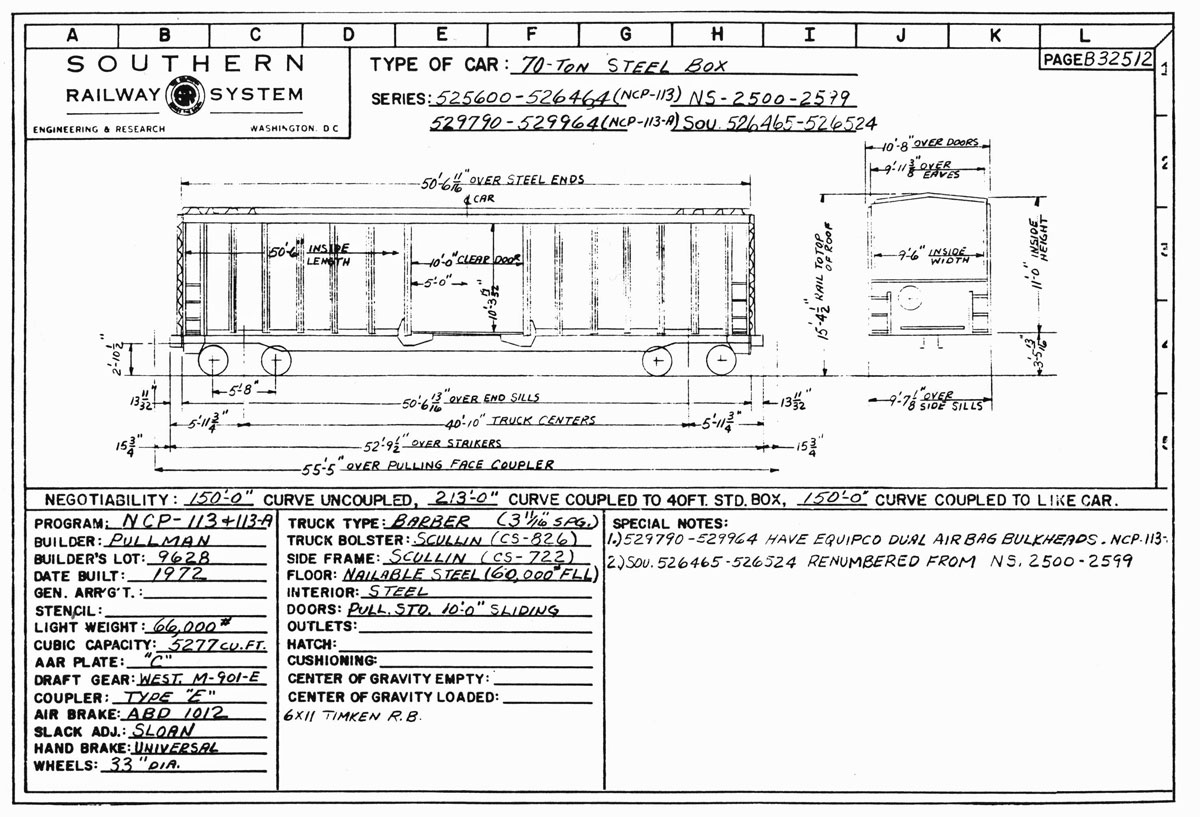 A B C D E F G H I J K L
SOUTHERN
RAILWAY SYSTEM
ENGINEERING & RESEARCH WASHINGTON. D C
TYPE OF CAR: 70-TON STEEL BOX
PAGE B32512
SERIES: 525600-526464 (NCP-113) NS-2500-2599
529790-529964 (NCP-113-A) SOU. 526465-526524
1
2
3
4
5
50'-6 11/16" OVER STEEL ENDS
℄ CAR
50'-6" INSIDE LENGTH
10'-0" CLEAR DOOR
5'-0"
2'-10 1/2"
5'-8"
13 11/32"
50'-6 13/16" OVER END SILLS
13 11/32"
5'-11 3/4"
40'-10" TRUCK CENTERS
5'-11 3/4"
15 3/4"
52'-9 1/2" OVER STRIKERS
15 3/4"
55'-5" OVER PULLING FACE COUPLER
10'-8" OVER DOORS
9'-11 3/8" OVER EAVES
9'-6" INSIDE WIDTH
15'-4 1/2" RAIL TO TOP OF ROOF
11'-0" INSIDE HEIGHT
3'-5 13/16"
9'-7 1/8" OVER SIDE SILLS
NEGOTIABILITY: 150'-0" CURVE UNCOUPLED, 213'-0" CURVE COUPLED TO 40FT. STD. BOX, 150'-0" CURVE COUPLED TO LIKE CAR.
PROGRAM: NCP-113+113-A
BUILDER: PULLMAN
BUILDER'S LOT: 9628
DATE BUILT: 1972
GEN. ARR'G'T.:
STENCIL:
LIGHT WEIGHT: 66,000#
CUBIC CAPACITY: 5277 CU.FT.
AAR PLATE: "C"
DRAFT GEAR: WEST. M-901-E
COUPLER: TYPE "E"
AIR BRAKE: ABD 1012
SLACK ADJ.: SLOAN
HAND BRAKE: UNIVERSAL
WHEELS: 33" DIA.
TRUCK TYPE: BARBER (3 11/16 SPG.)
TRUCK BOLSTER: SCULLIN (CS-826)
SIDE FRAME: SCULLIN (CS-722)
FLOOR: NAILABLE STEEL (60,000# FLL)
INTERIOR: STEEL
DOORS: PULL. STD. 10'-0" SLIDING
OUTLETS:
HATCH:
CUSHIONING:
CENTER OF GRAVITY EMPTY:
CENTER OF GRAVITY LOADED:
6X11 TIMKEN R.B.
SPECIAL NOTES:
1.) 529790-529964 HAVE EQUIPCO DUAL AIR BAG BULKHEADS. NCP-113-
2.) SOU. 526465-526524 RENUMBERED FROM NS. 2500-2599